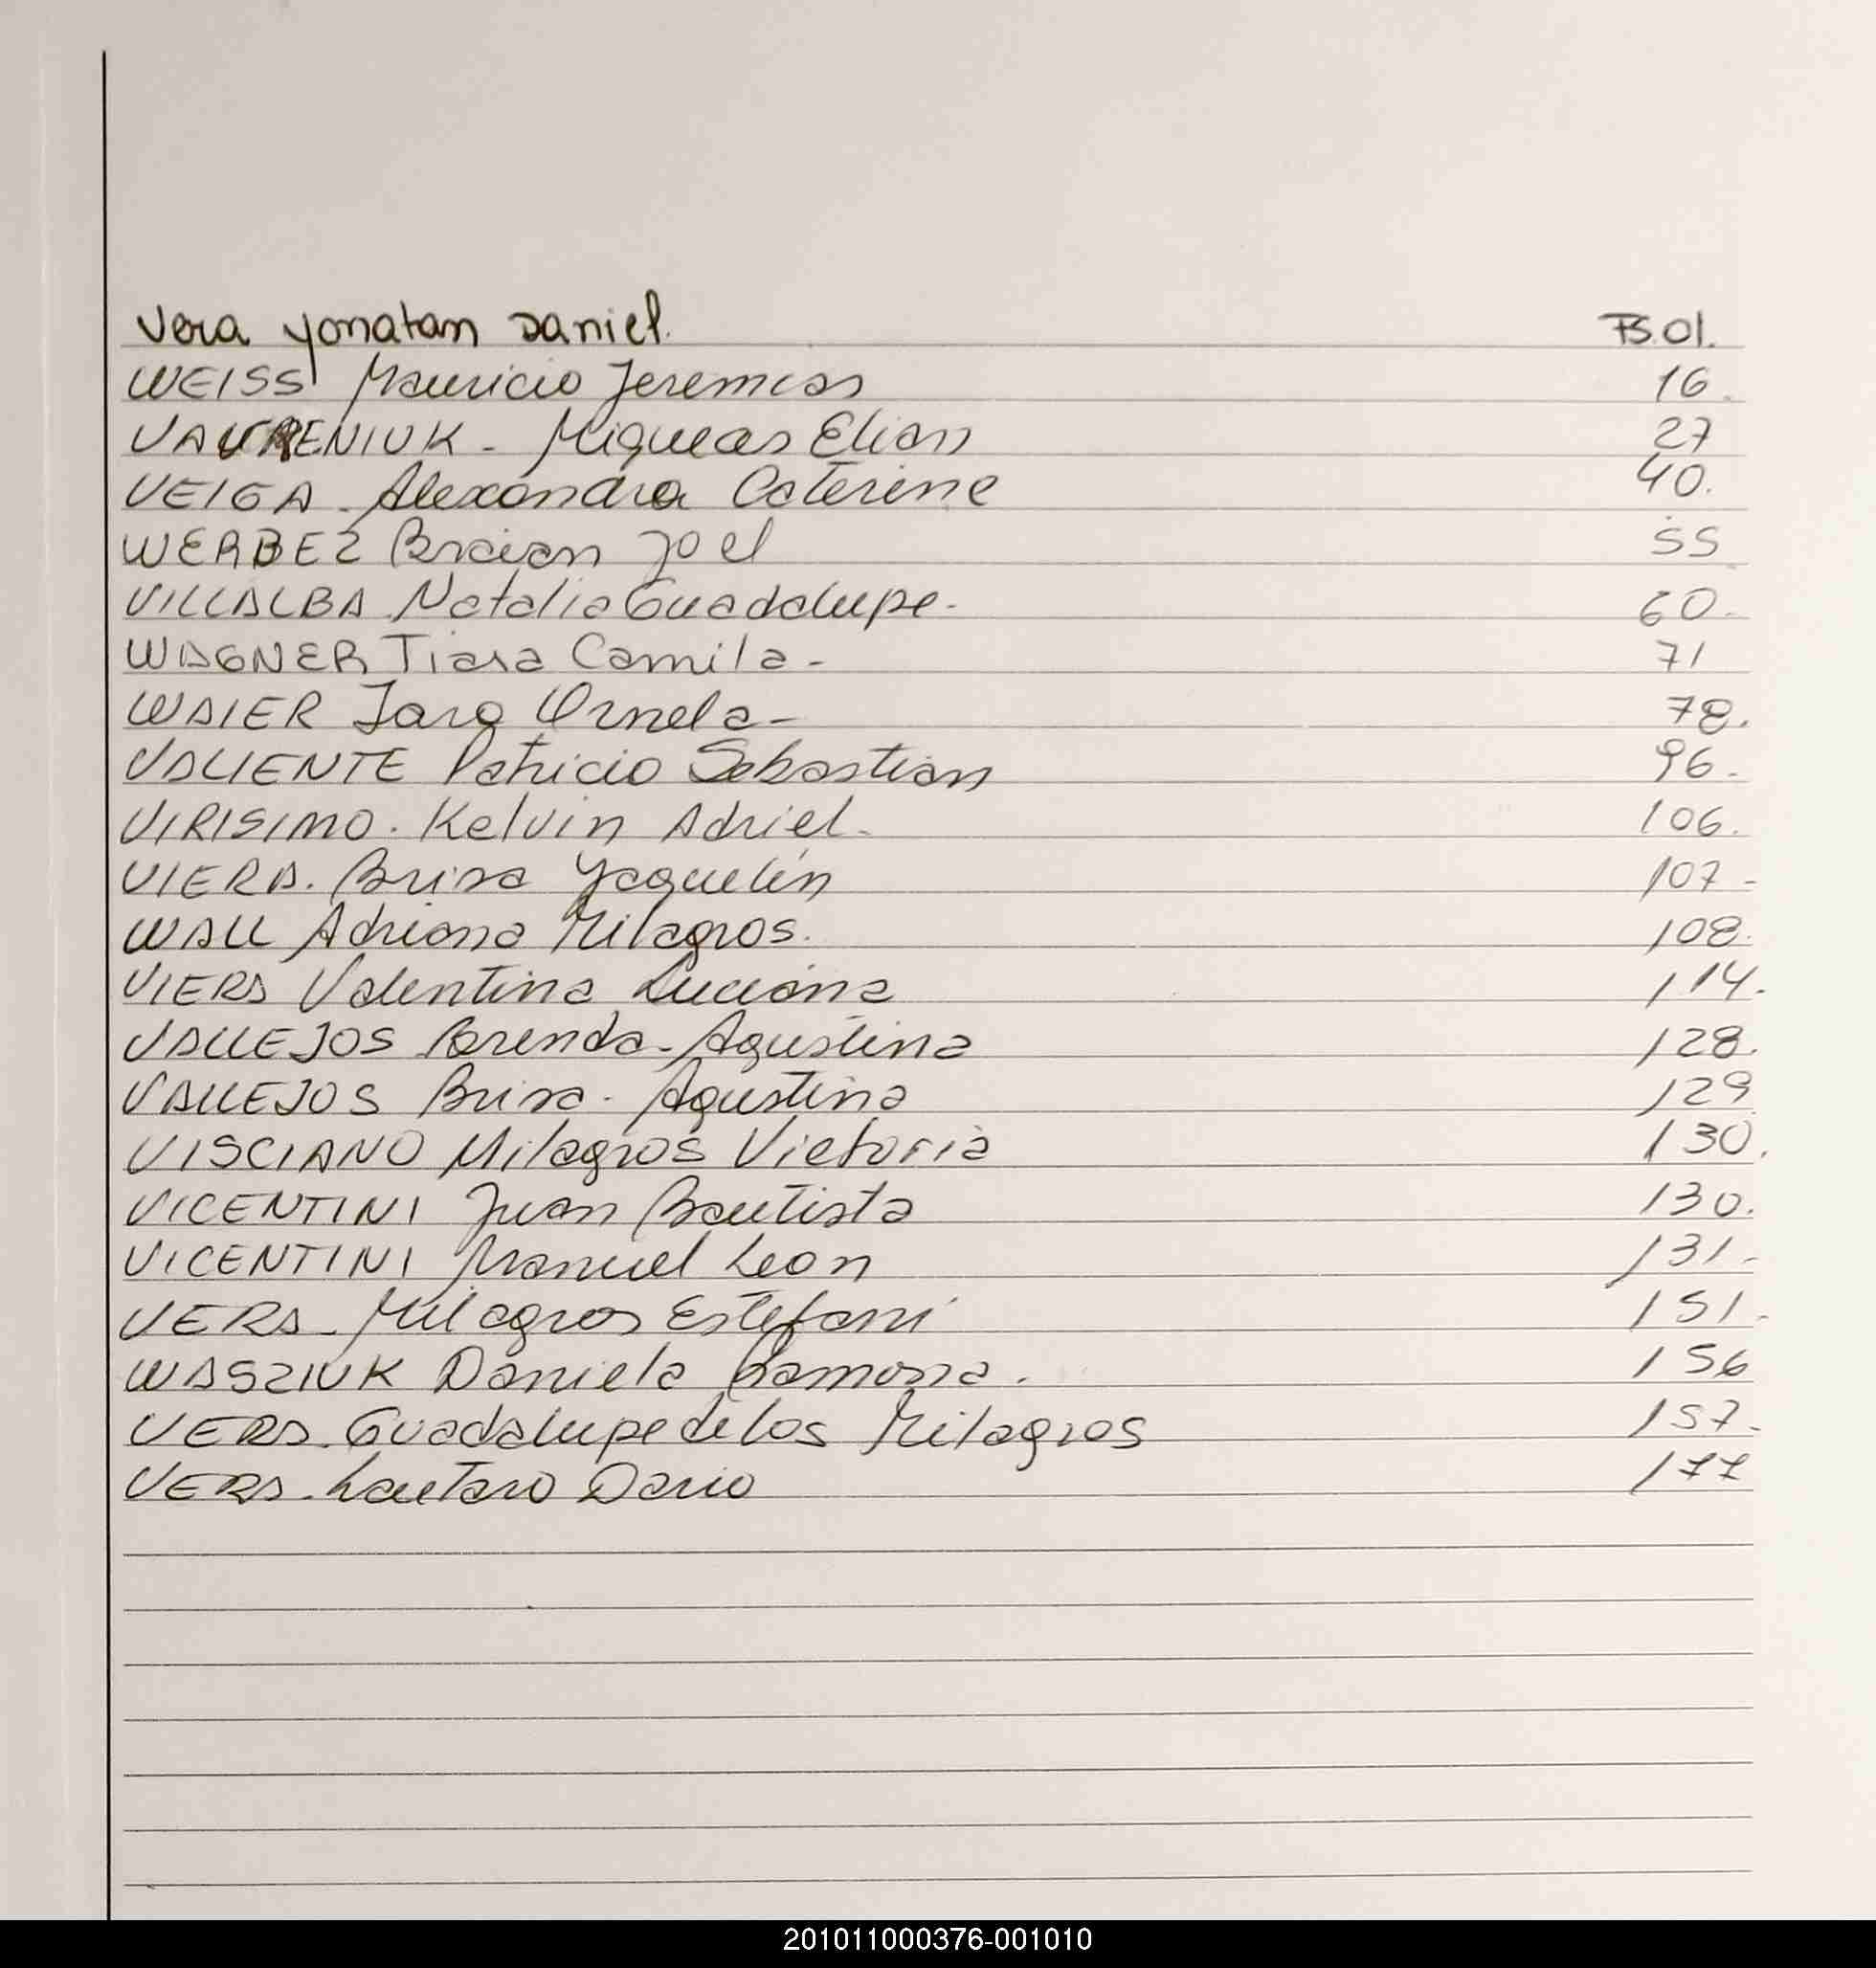 Vera Yonatan Daniel. Fs.01.
WEISS Mauricio Jeremias 16.
VAURENIUK - Miqueas Elian 27
VEIGA - Alexandra Caterine 40.
WERBEZ Braian Joel 55
VILLALBA Natalia Guadalupe - 60-
WAGNER Tiara Camila - 71
WAIER Iara Ornela - 78.
VALIENTE Patricio Sebastian 96-
VIRISIMO. Kelvin Adriel. 106.
VIERA. Brisa Yaquelin 107-
WALL Adriana Milagros. 108.
VIERA Valentina Luciana 114.
VALLEJOS Brenda - Agustina 128.
VALLEJOS Brisa - Agustina 129
VISCIANO Milagros Victoria 130.
VICENTINI Juan Bautista 130.
VICENTINI Manuel Leon 131-
VERA - Milagros Estefani 151-
WASZIUK Daniela Ramona. 156
VERA - Guadalupe de los Milagros 157-
VERA - Lautaro Dario 177
201011000376-001010